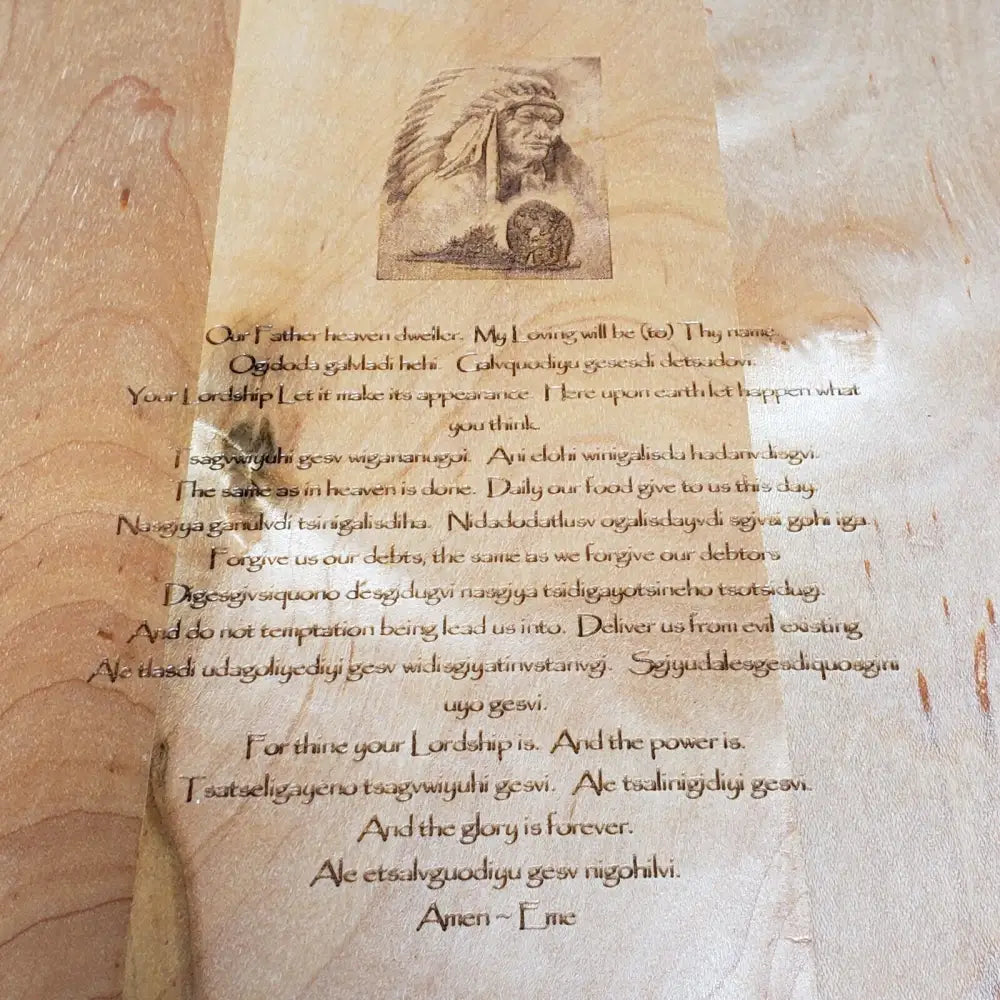 Our Father heaven dweller. My Loving will be (to) Thy name.
Ogidoda galvladi hehi. Galvquodiyu gesesdi detsudovi.
Your Lordship Let it make its appearance. Here upon earth let happen what
you think.
Tsagvwiyuhi gesv wigananugoi. Ani elohi winigalisda hadanvdisgvi.
The same as in heaven is done. Daily our food give to us this day.
Nasgiya ganulvdi tsinigalisdiha. Nidadodatlusv ogalisdayvdi sgivsi gohi iga.
Forgive us our debts, the same as we forgive our debtors
Digesgivsiquono desgidugvi nasgiya tsidigayotsineho tsotsidugi.
And do not temptation being lead us into. Deliver us from evil existing
Ale tlasdi udagoliyediyi gesv widisgiyatinvstanvgi. Sgiyudalesgesdiquosgini
uyo gesvi.
For thine your Lordship is. And the power is.
Tsatseligayeno tsagvwiyuhi gesvi. Ale tsalinigidiyi gesvi.
And the glory is forever.
Ale etsalvguodiyu gesv nigohilvi.
Amen ~ Eme